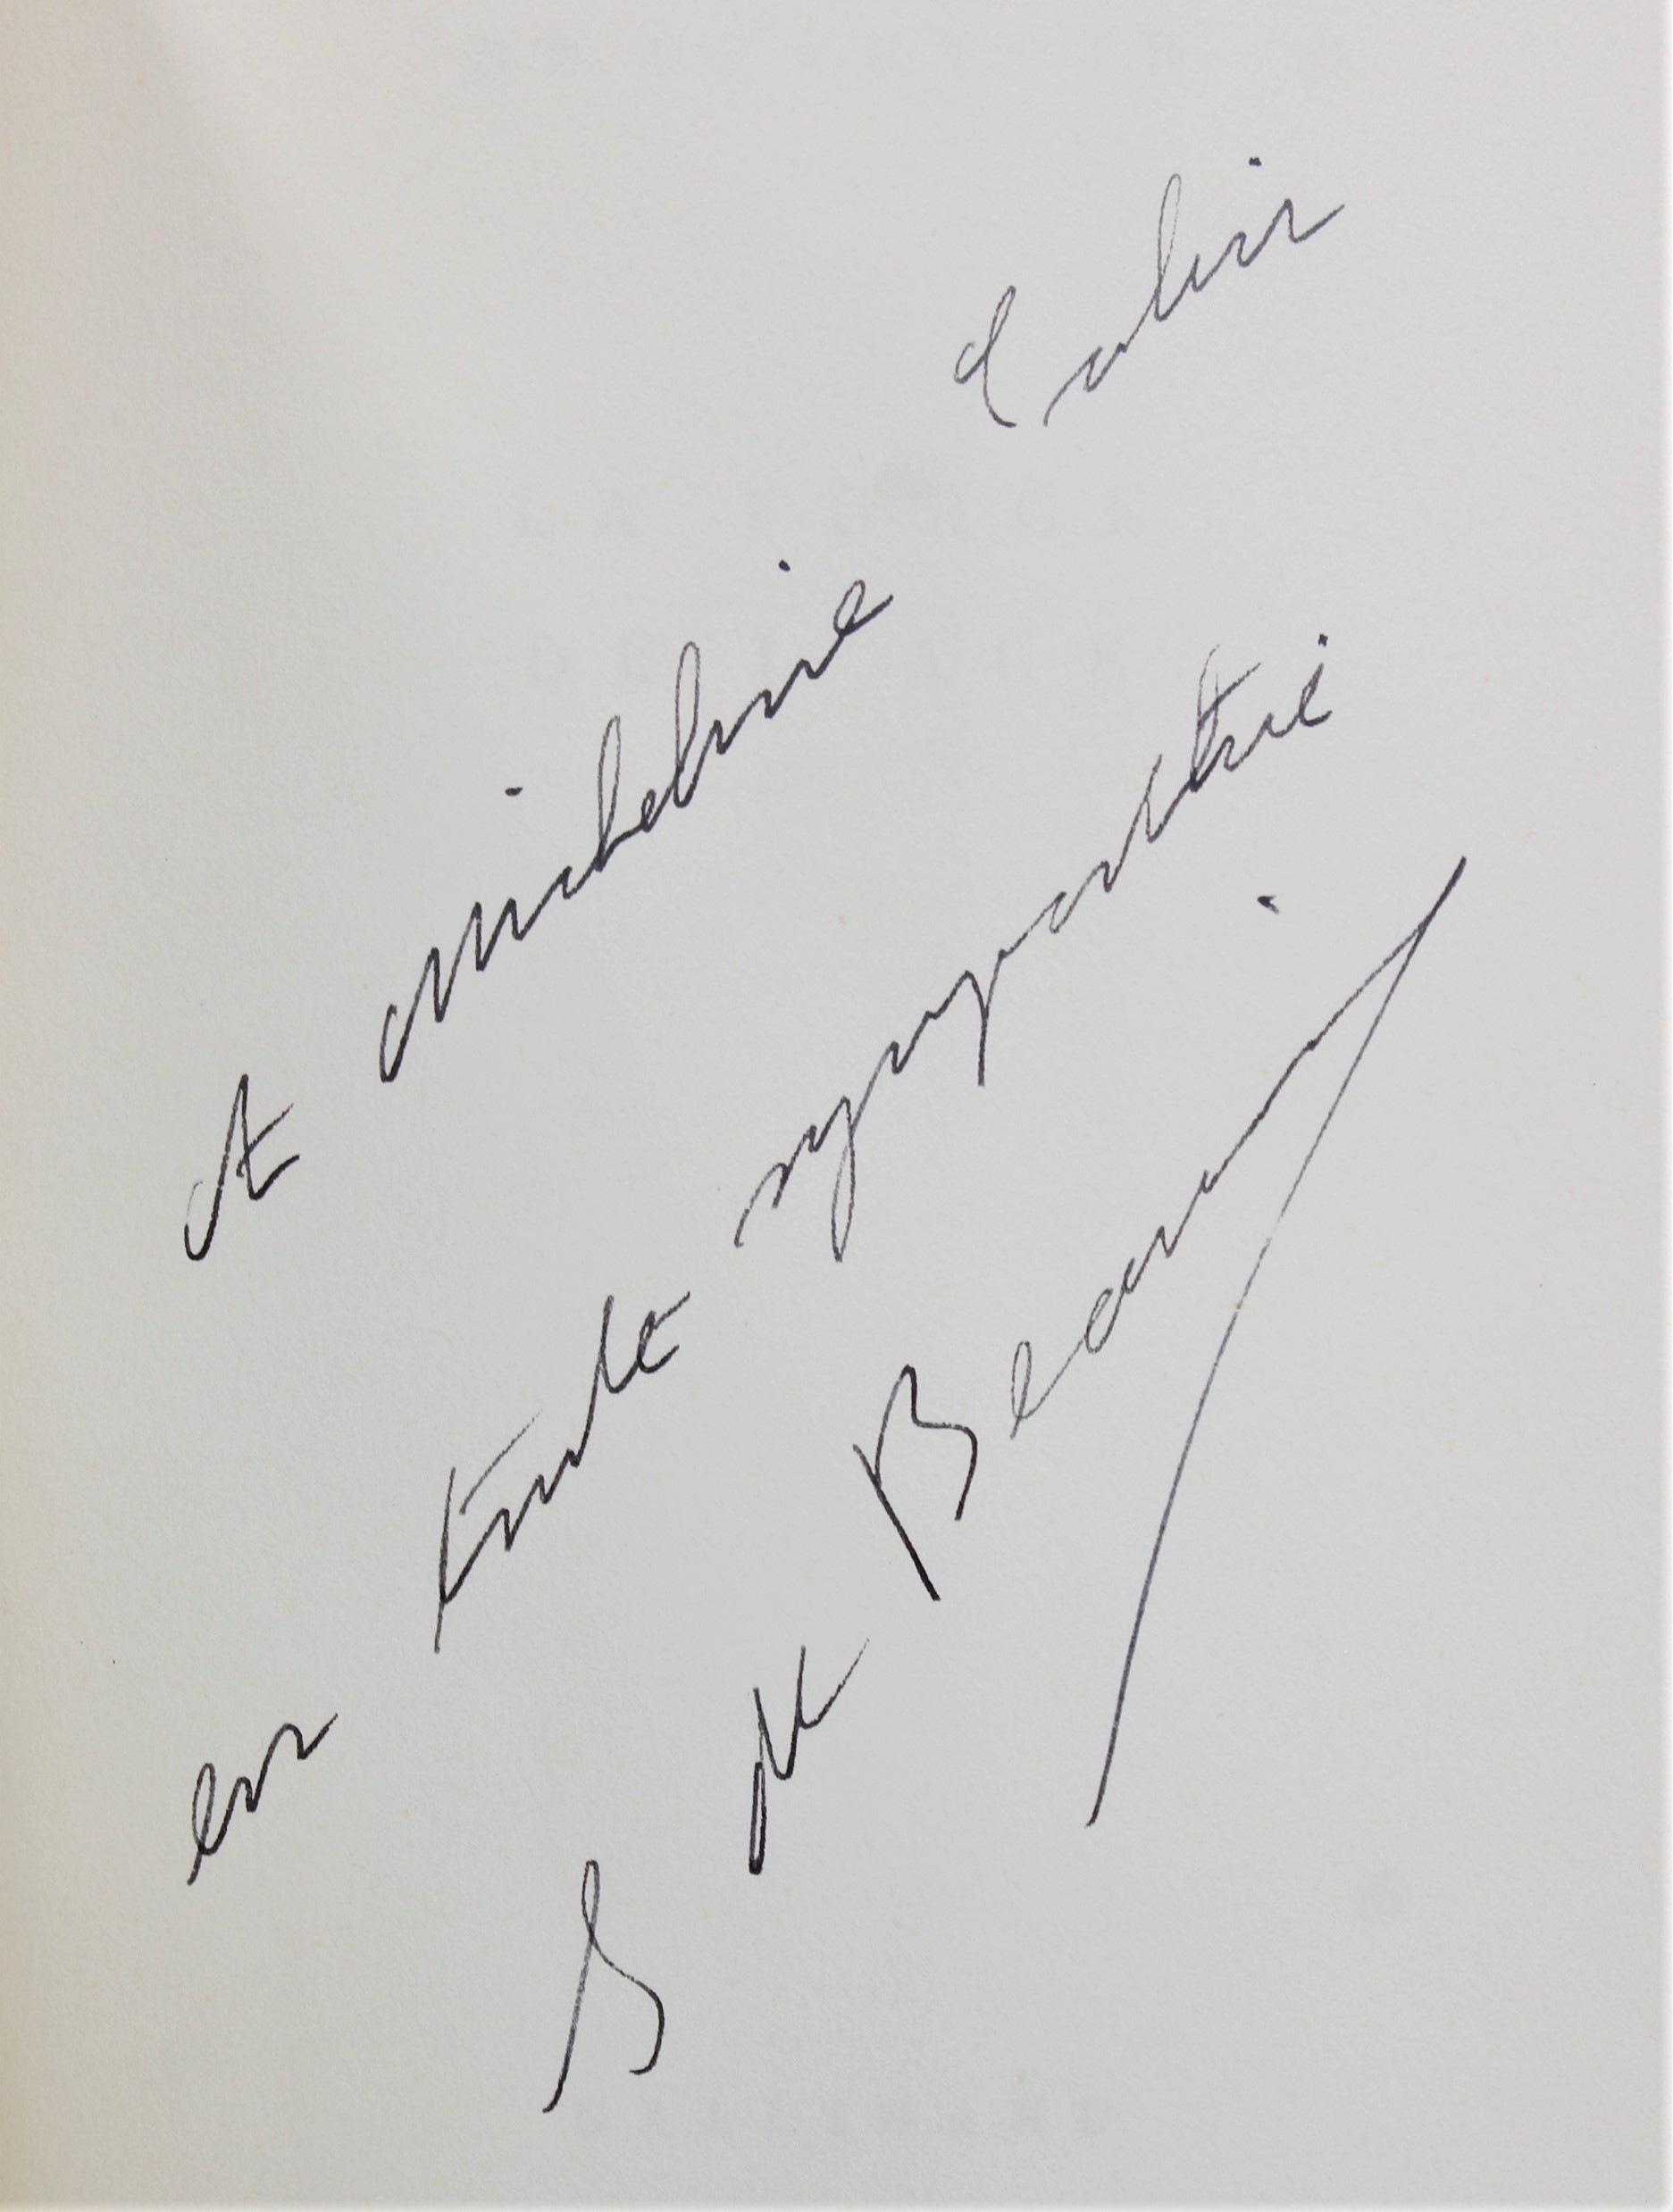 A Micheline
en toute sympathie
S de Beauvoir